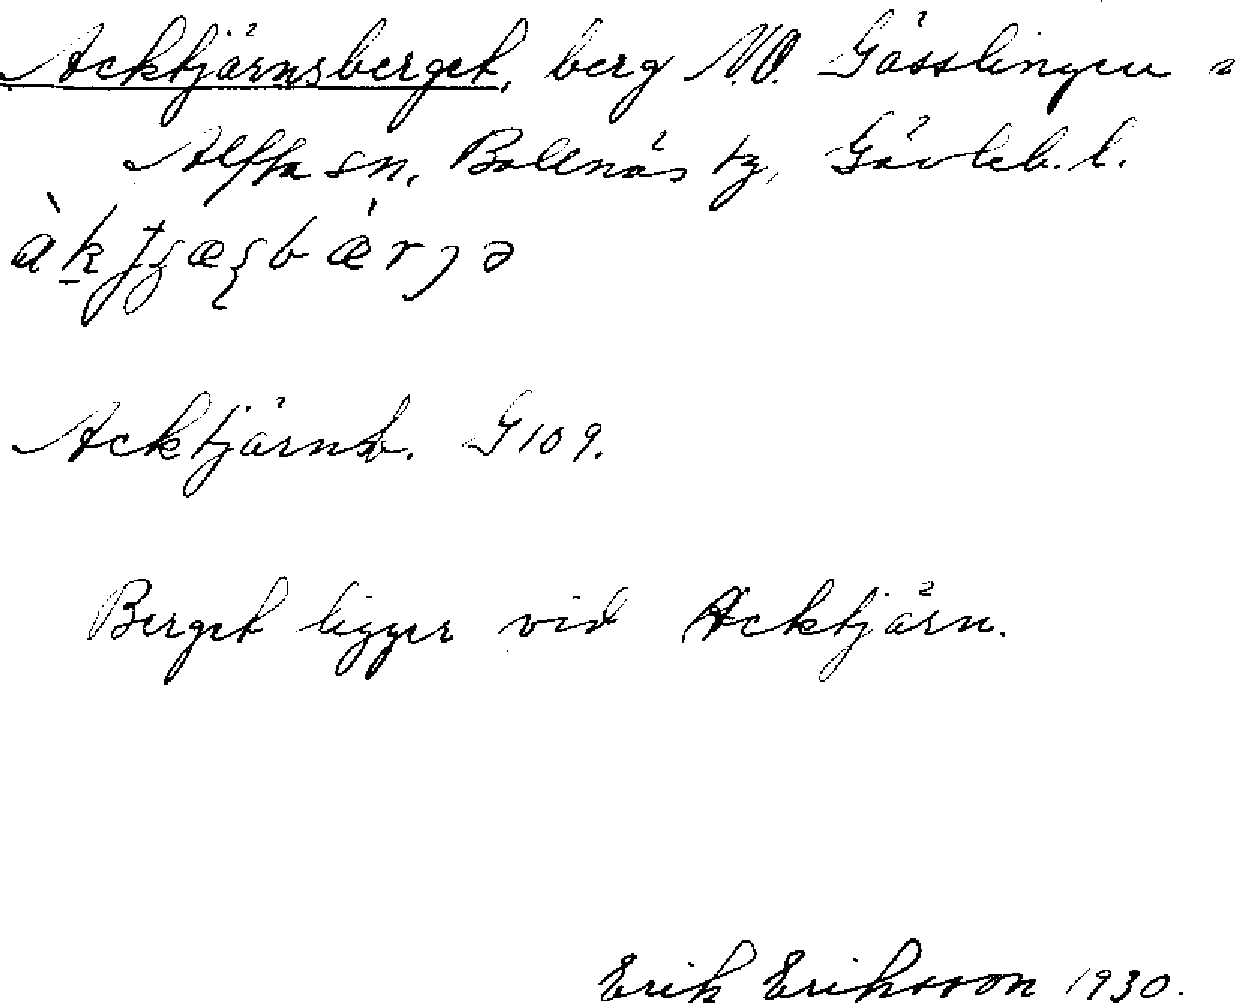 Acktjärnsberget, berg N.O. Gässlingen i
Alfta sn, Bollnäs tg, Gävleb. l.
Acktjärnsb. G 109.
Berget ligger vid Acktjärn.
Erik Eriksson 1930.